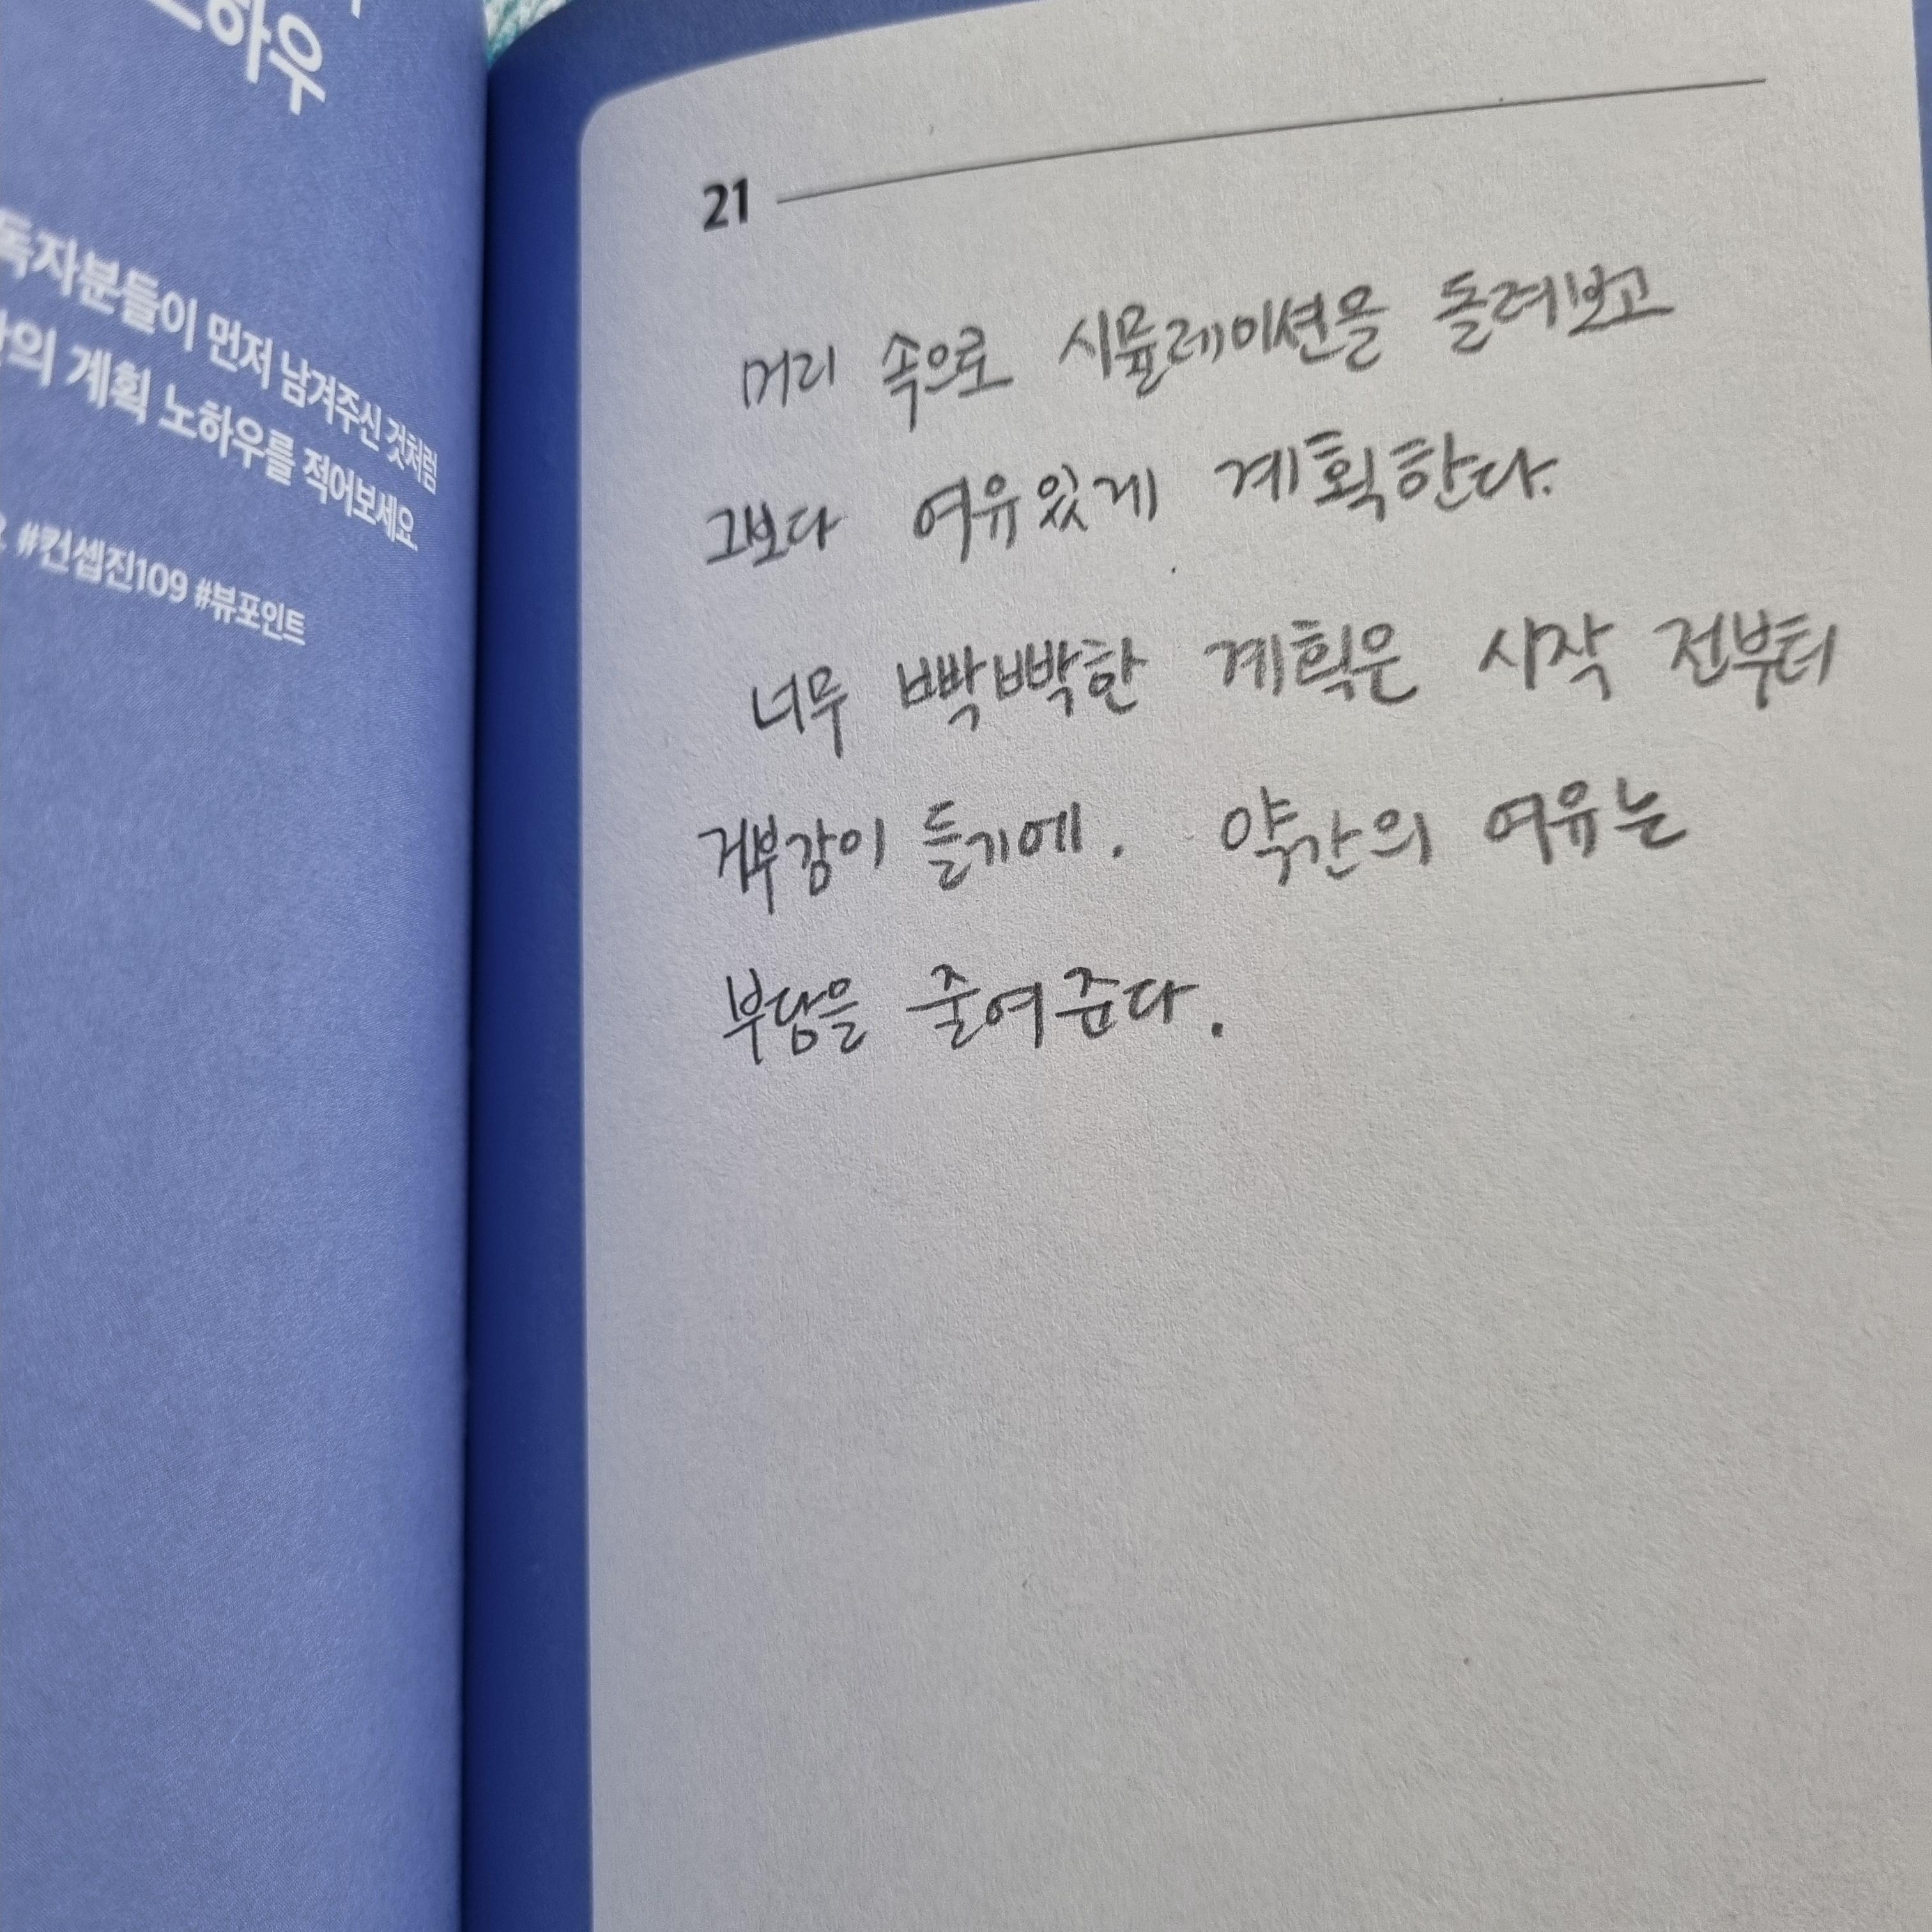 노하우
독자분들이 먼저 남겨주신 것처럼
계획 노하우를 적어보세요.
#컨셉진109 #뷰포인트
21
머리 속으로 시뮬레이션을 돌려보고
그보다 여유있게 계획한다.
너무 빡빡한 계획은 시작 전부터
거부감이 들기에. 약간의 여유는
부담을 줄여준다.